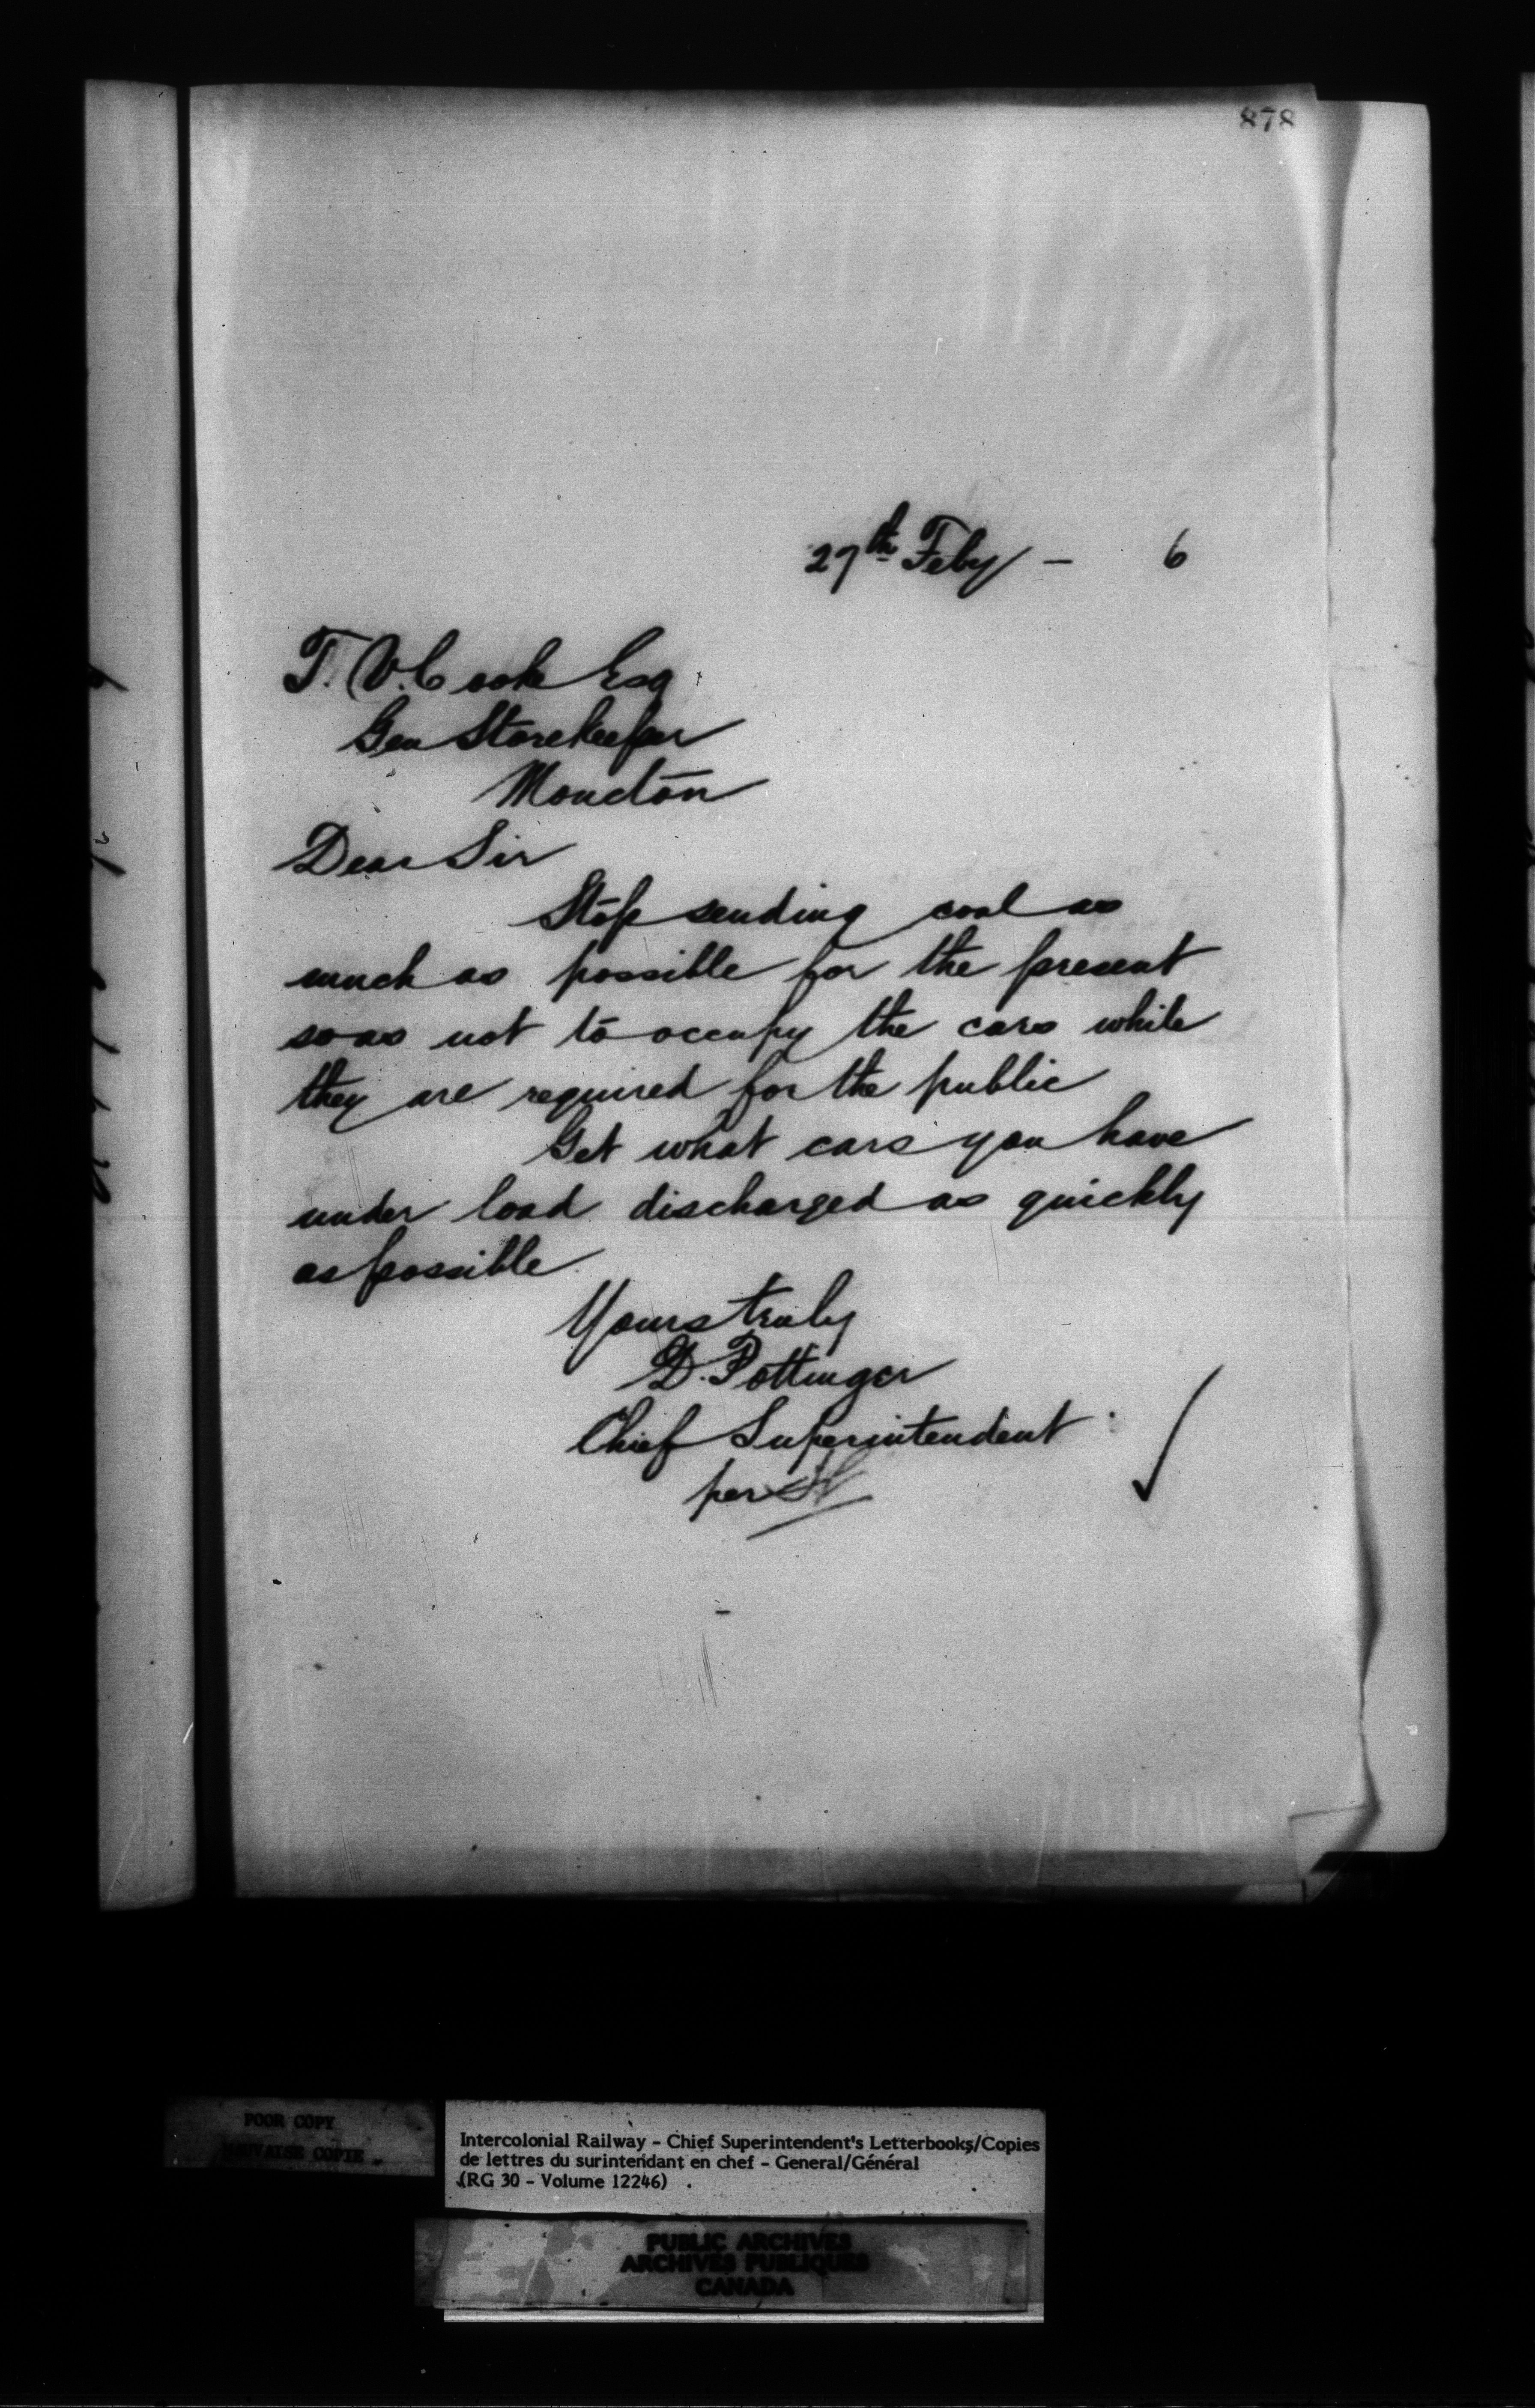 878
27th Feby - 6
T. V. Cooke Esq
Gen Storekeeper
Moncton
Dear Sir
Stop sending coal as
much as possible for the present
so as not to occupy the cars while
they are required for the public
Get what cars you have
under load discharged as quickly
as possible
Yours truly
D. Pottinger
Chief Superintendent
per
POOR COPY
MAUVAISE COPIE
Intercolonial Railway - Chief Superintendent's Letterbooks/Copies
de lettres du surintendant en chef - General/Général
(RG 30 - Volume 12246)
PUBLIC ARCHIVES
ARCHIVES PUBLIQUES
CANADA